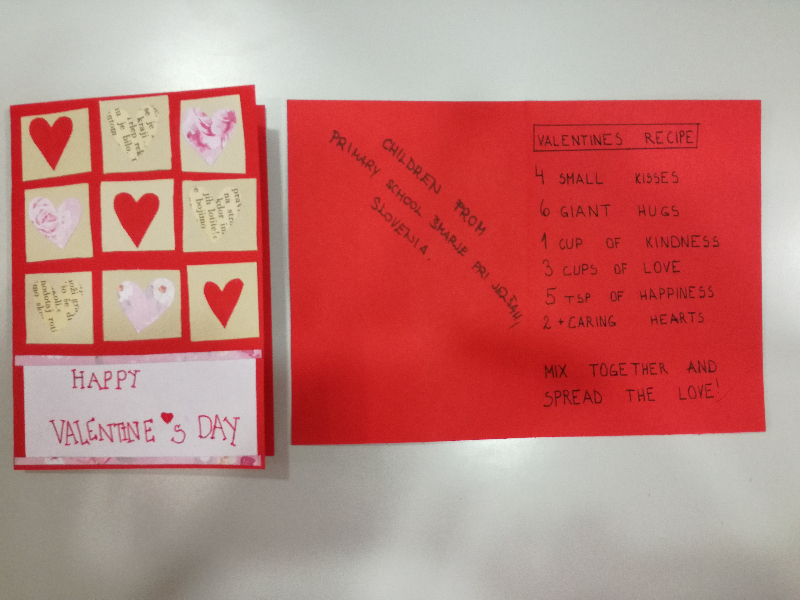 HAPPY
VALENTINE'S DAY
CHILDREN FROM
PRIMARY SCHOOL ŠMARJE PRI JELŠAH,
SLOVENIA.
VALENTINES RECIPE
4 SMALL KISSES
6 GIANT HUGS
1 CUP OF KINDNESS
3 CUPS OF LOVE
5 TSP OF HAPPINESS
2 + CARING HEARTS
MIX TOGETHER AND
SPREAD THE LOVE!